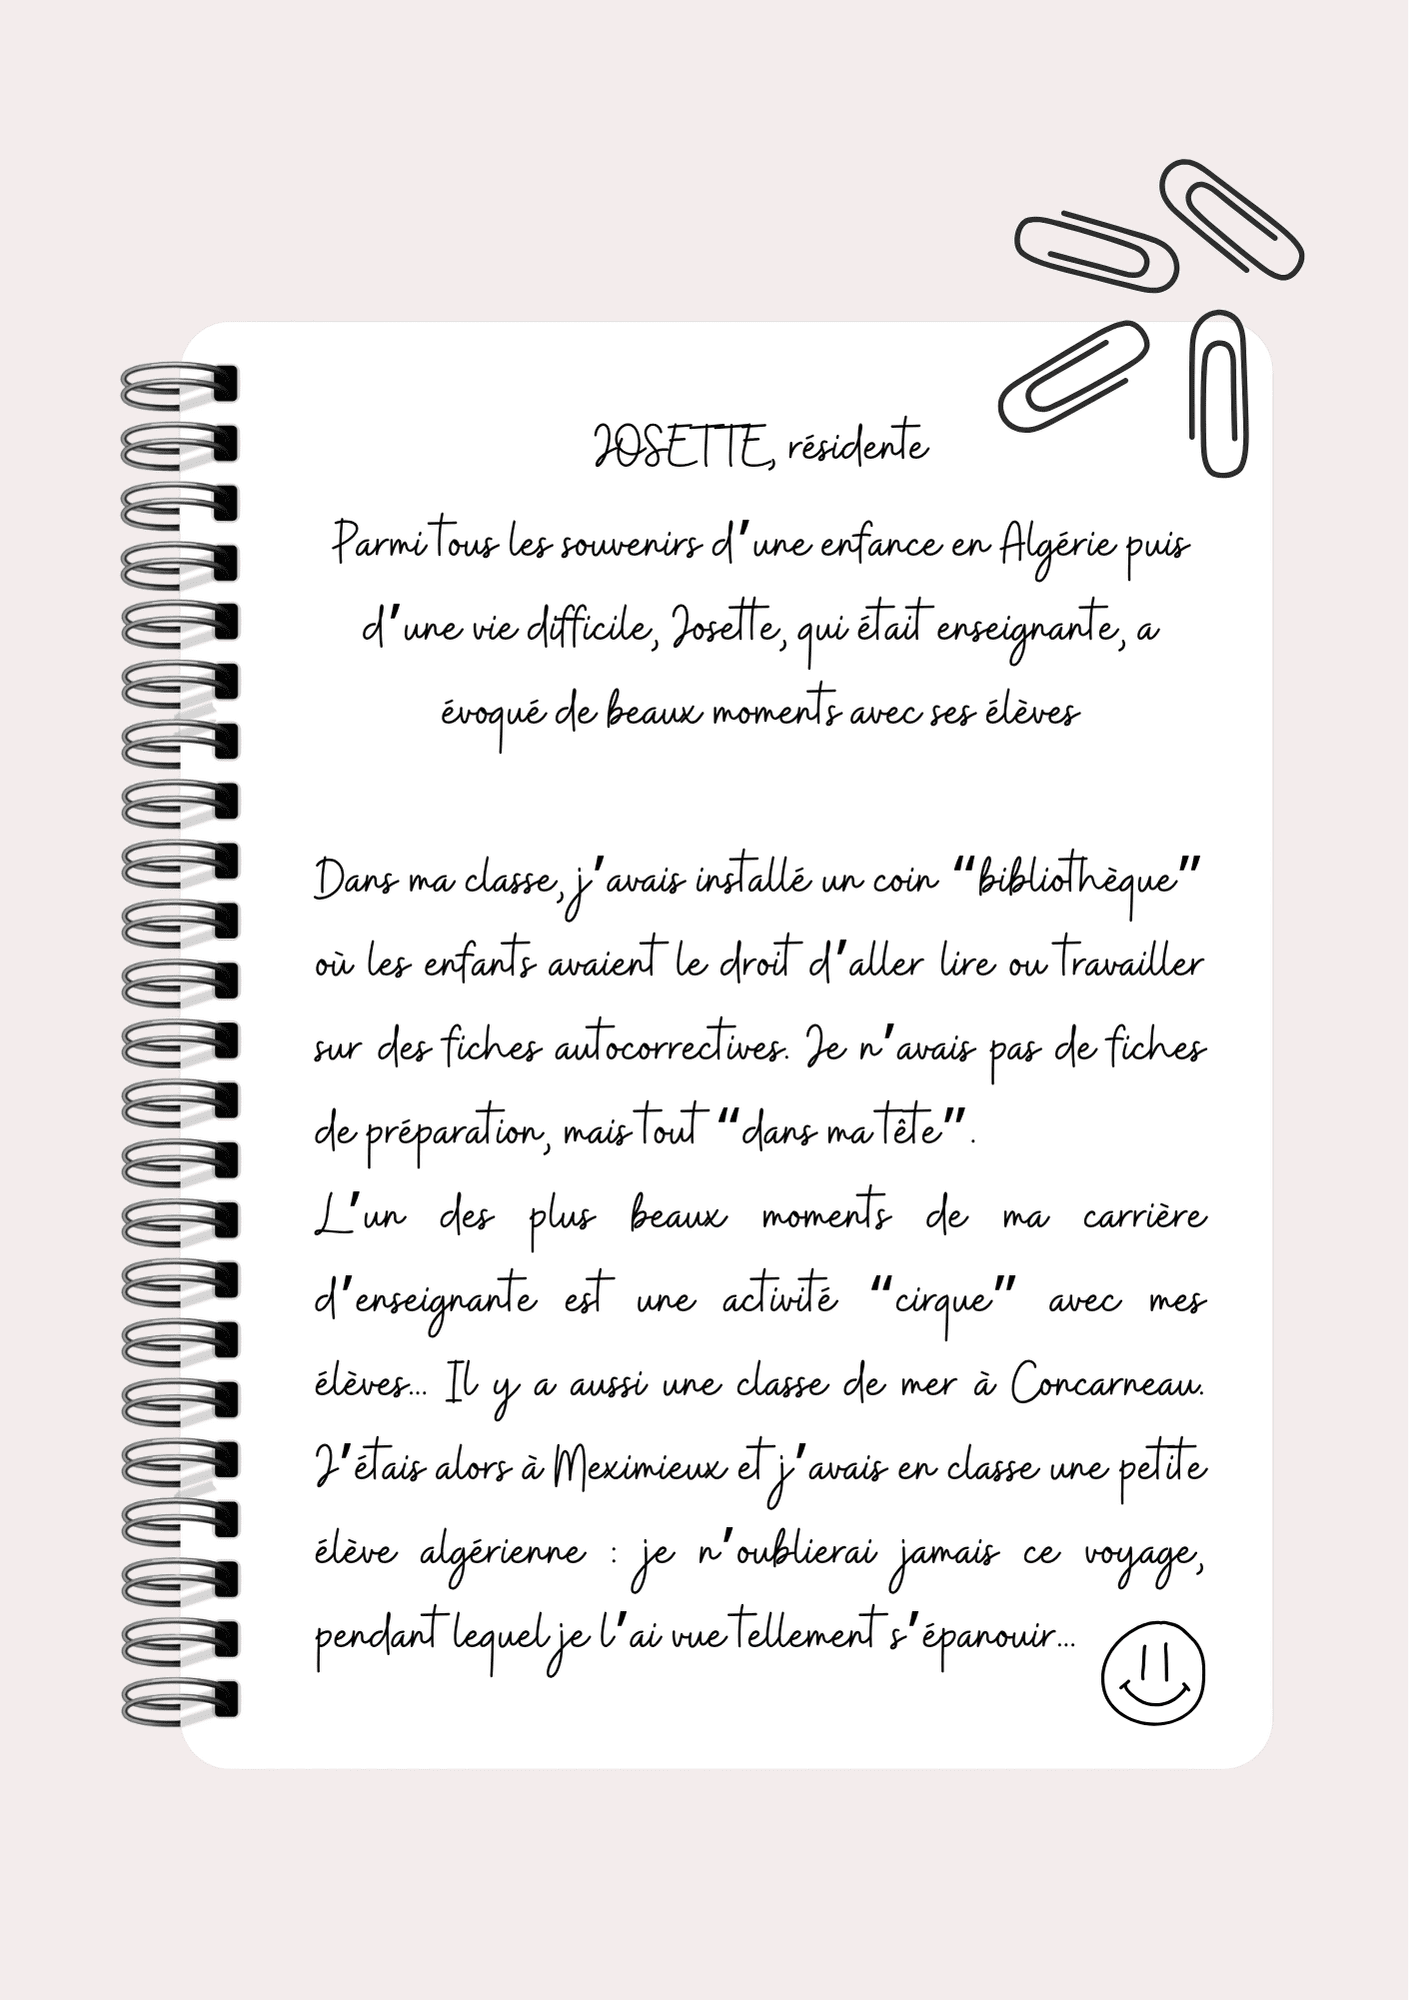 JOSETTE, résidente
Parmi tous les souvenirs d'une enfance en Algérie puis
d'une vie difficile, Josette, qui était enseignante, a
évoqué de beaux moments avec ses élèves
Dans ma classe, j'avais installé un coin “bibliothèque”
où les enfants avaient le droit d'aller lire ou travailler
sur des fiches autocorrectives. Je n'avais pas de fiches
de préparation, mais tout “dans ma tête”.
L'un des plus beaux moments de ma carrière
d'enseignante est une activité “cirque” avec mes
élèves... Il y a aussi une classe de mer à Concarneau.
J'étais alors à Meximieux et j'avais en classe une petite
élève algérienne : je n'oublierai jamais ce voyage,
pendant lequel je l'ai vue tellement s'épanouir...